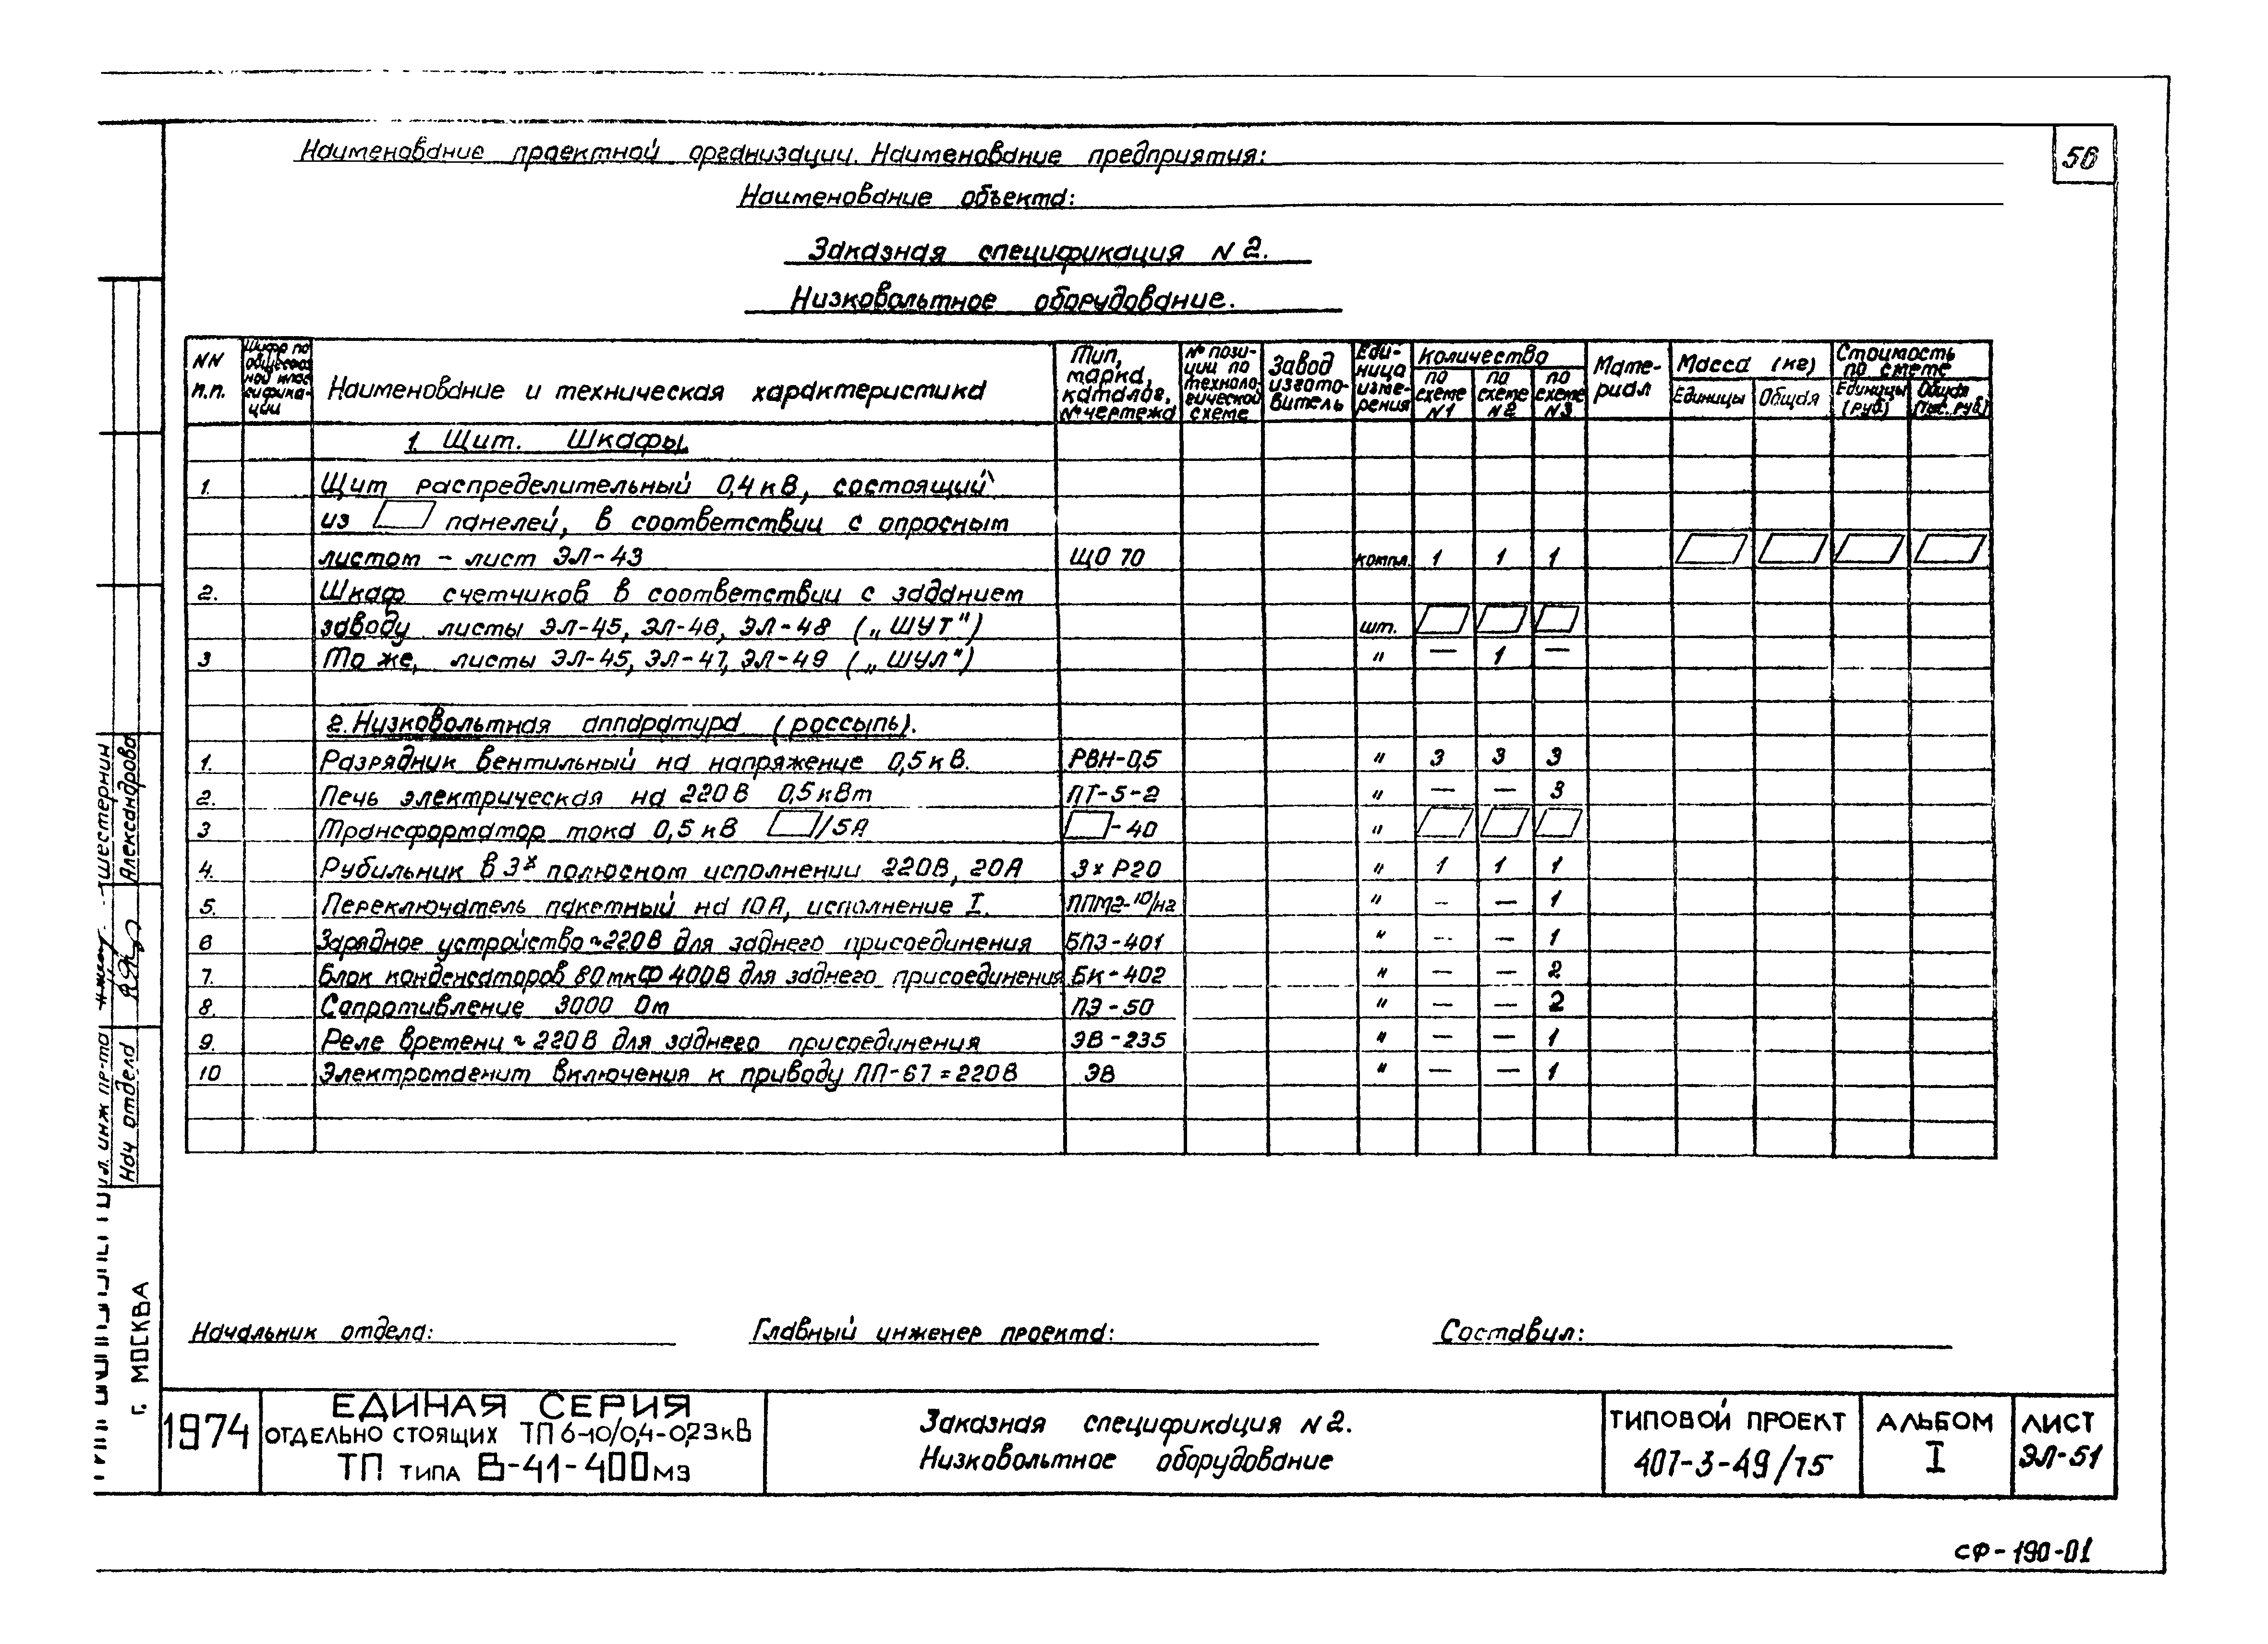 56
Наименование проектной организации. Наименование предприятия:
Наименование объекта:
Заказная спецификация N 2.
Низковольтное оборудование.
NN п.п. | Шифр по общесоюзной классификации | Наименование и техническая характеристика | Тип, марка, каталог, № чертежа | № позиции по технологической схеме | Завод изготовитель | Единица измерения | Количество по схеме N1 | по схеме N2 | по схеме N3 | Материал | Масса (кг) Единицы | Общая | Стоимость по смете Единицы (руб) | Общая (тыс. руб)
1. Щит. Шкафы.
1. Щит распределительный 0,4 кВ, состоящий
из панелей, в соответствии с опросным
листом – лист ЭЛ-43 ЩО 70 компл. 1 1 1
2. Шкаф счетчиков в соответствии с заданием
заводу листы ЭЛ-45, ЭЛ-46, ЭЛ-48 („ШУТ") шт.
3 То же, листы ЭЛ-45, ЭЛ-47, ЭЛ-49 („ШУЛ") " — 1 —
2. Низковольтная аппаратура (россыпь).
1. Разрядник вентильный на напряжение 0,5 кВ. РВН-0,5 " 3 3 3
2. Печь электрическая на 220 В 0,5 кВт ПТ-5-2 " — — 3
3 Трансформатор тока 0,5 кВ /5А -40 "
4. Рубильник в 3х полюсном исполнении 220В, 20А 3х Р20 " 1 1 1
5. Переключатель пакетный на 10А, исполнение I. ППМ2-10/н2 " - — 1
6 Зарядное устройство ~220В для заднего присоединения БПЗ-401 " - — 1
7. Блок конденсаторов 80 мкФ 400В для заднего присоединения БК-402 " — — 2
8. Сопротивление 3000 Ом ПЭ-50 " — — 2
9. Реле времени ~ 220 В для заднего присоединения ЭВ-235 " — — 1
10 Электромагнит включения к приводу ПП-67 = 220В ЭВ " — — 1
Начальник отдела: Главный инженер проекта: Составил:
Шестернин
Александрова
Гл. инж пр-та
Нач отдела
г. МОСКВА
1974
ЕДИНАЯ СЕРИЯ
ОТДЕЛЬНО СТОЯЩИХ ТП 6-10/0,4-0,23 кВ
ТП ТИПА В-41-400 М3
Заказная спецификация N 2.
Низковольтное оборудование
ТИПОВОЙ ПРОЕКТ
407-3-49/75
АЛЬБОМ
I
ЛИСТ
ЭЛ-51
СФ-190-01